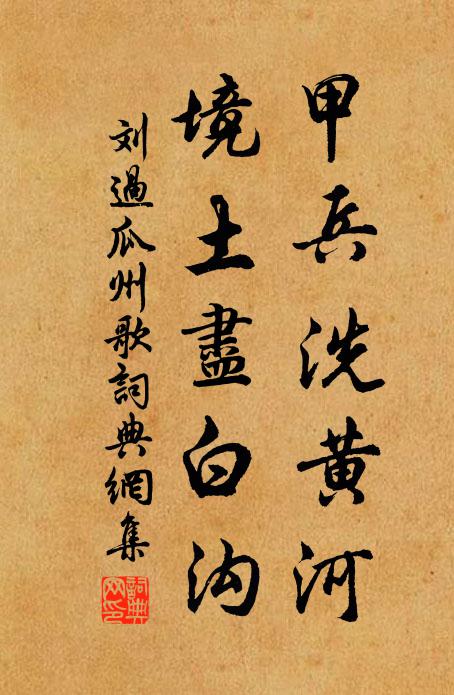 甲兵洗黄河
境土盡白沟
刘過瓜州歌詞典網集
詞典網印